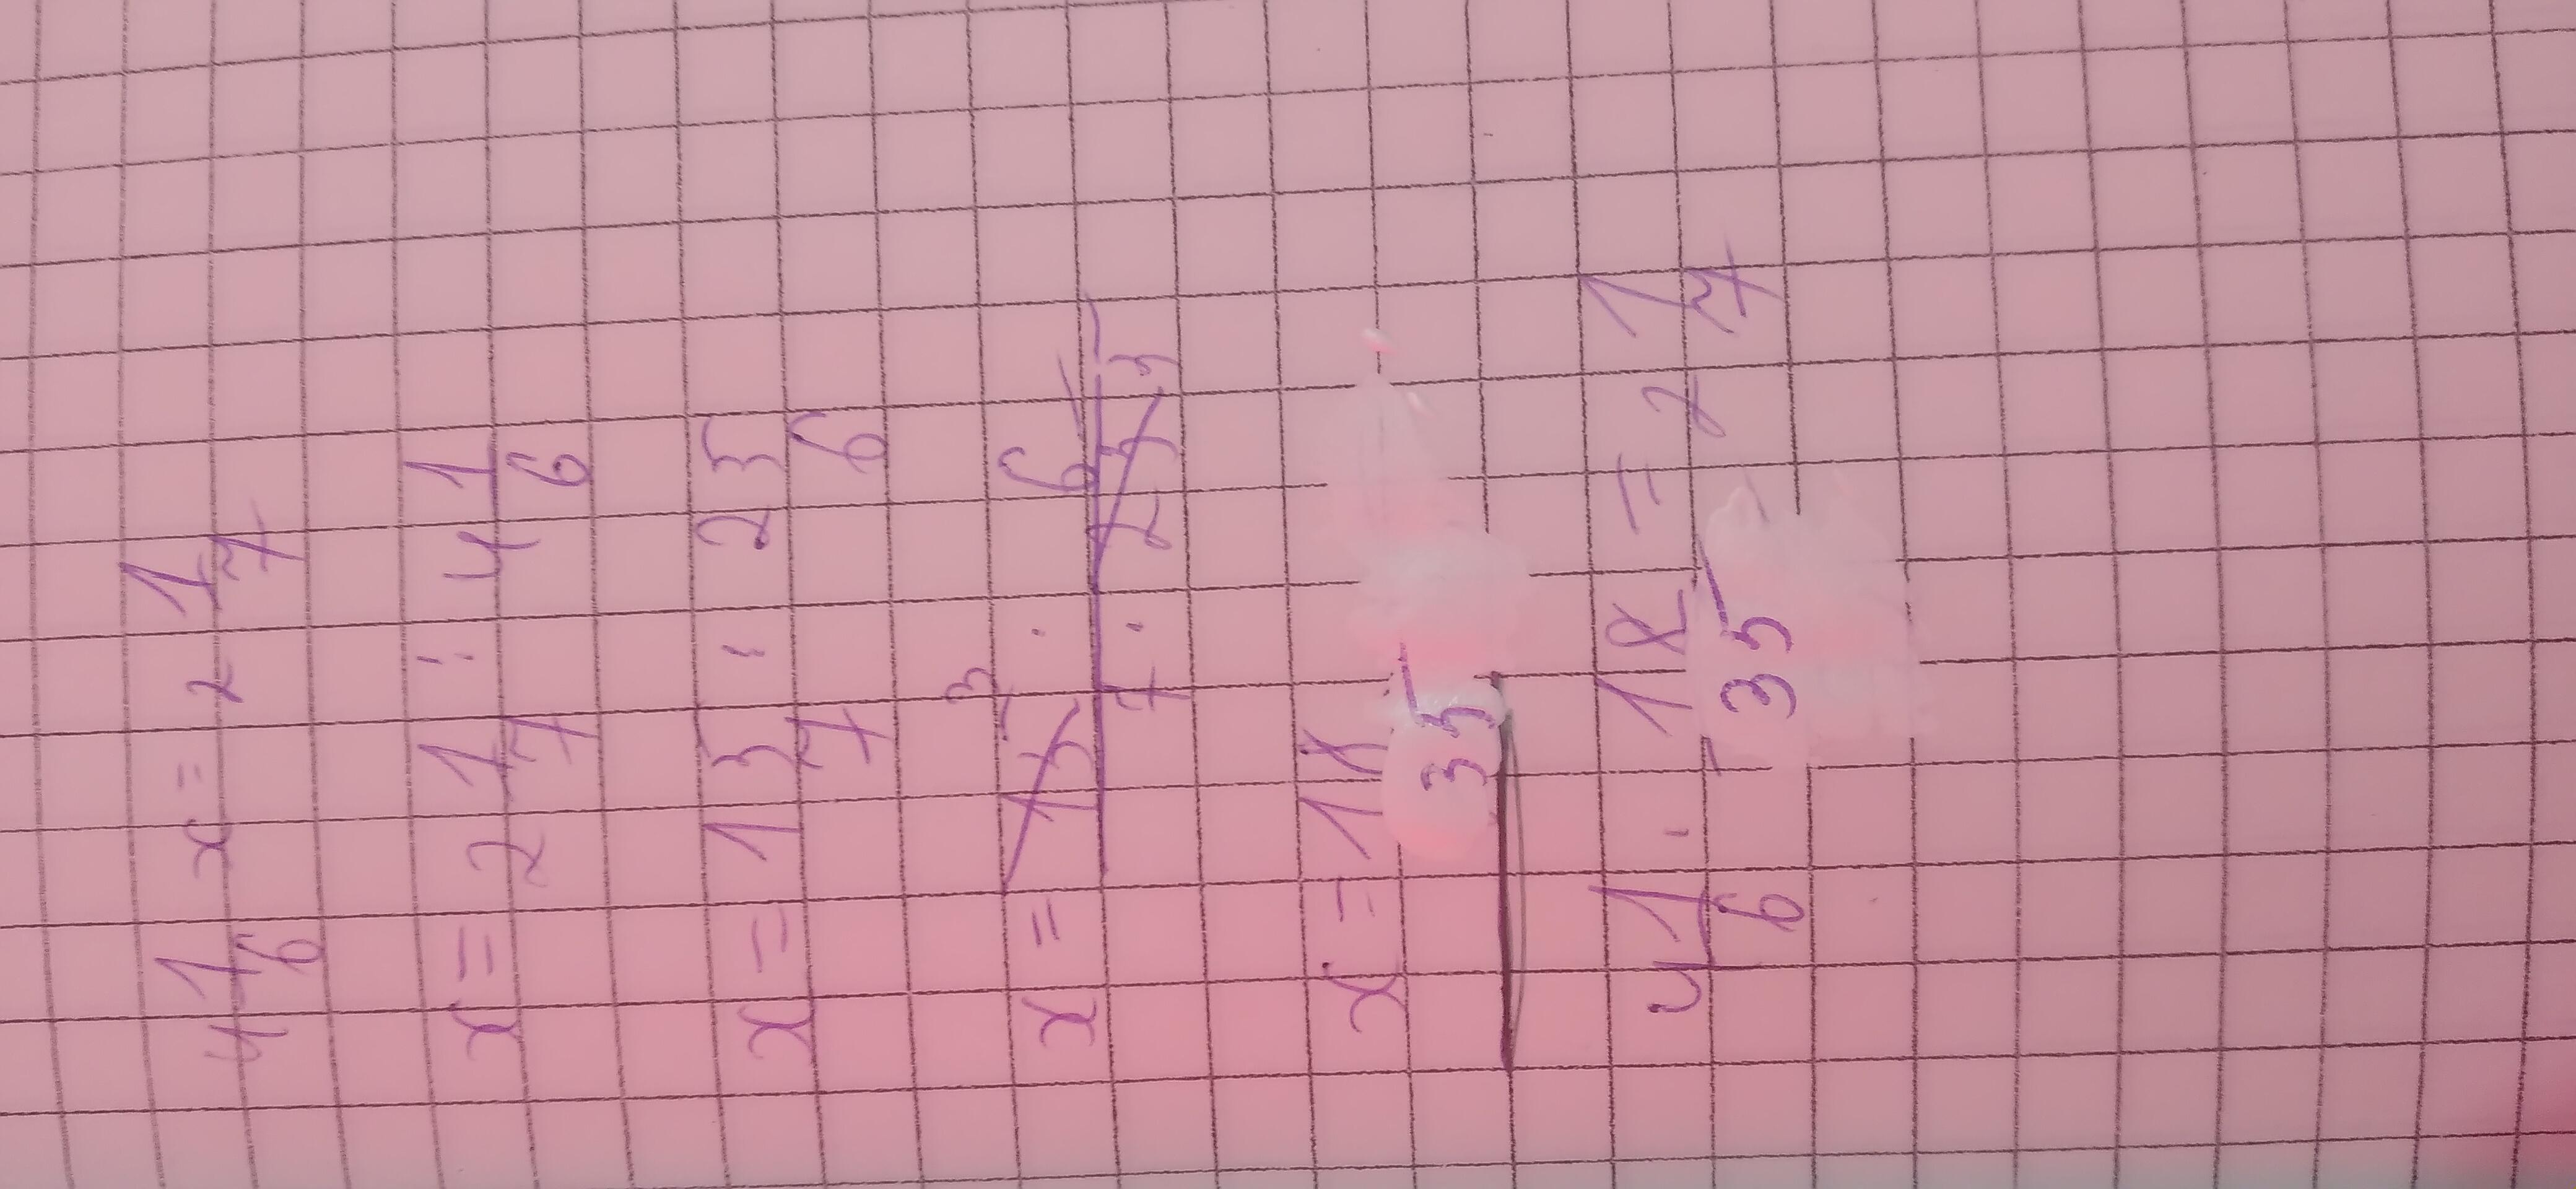 4 1/6 x = 2 1/7
x = 2 1/7 : 4 1/6
x = 15/7 : 25/6
x = 15 3 · 6 / 7 · 25 5
x = 18/35
4 1/6 · 18/35 = 2 1/7